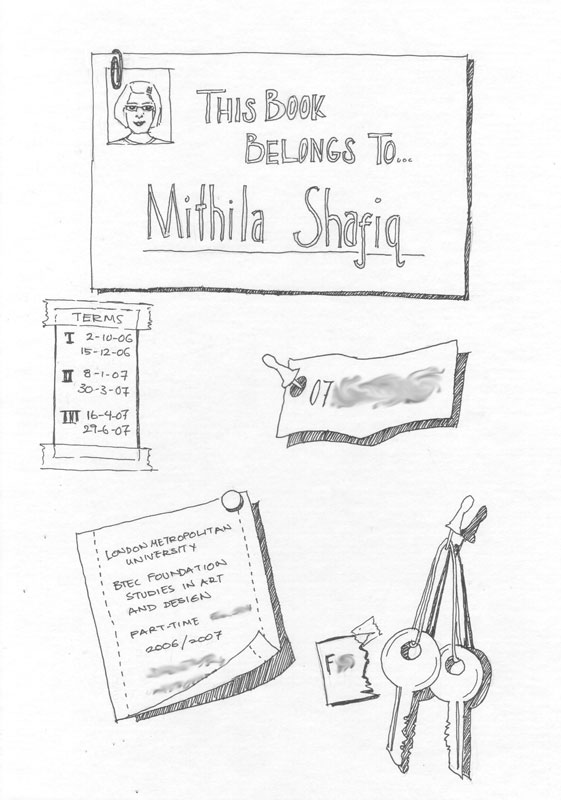 THIS BOOK
BELONGS TO...
Mithila Shafiq
TERMS
I 2-10-06
15-12-06
II 8-1-07
30-3-07
III 16-4-07
29-6-07
07
LONDON METROPOLITAN
UNIVERSITY
BTEC FOUNDATION
STUDIES IN ART
AND DESIGN
PART-TIME
2006/2007
F